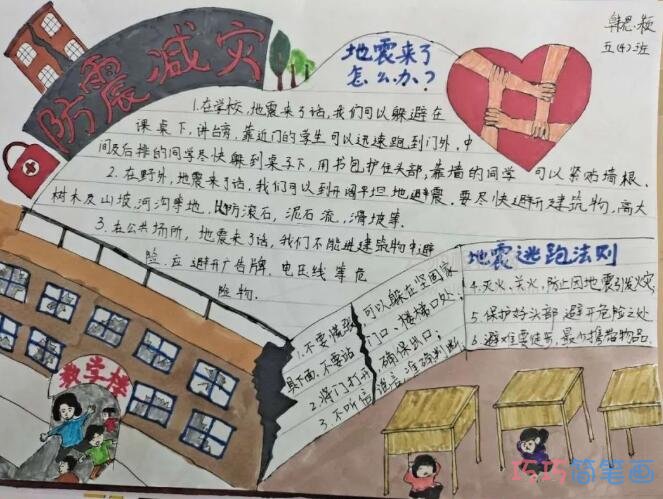 防震减灾
地震来了
怎么办?
韩思颖
五(4)班
1.在学校,地震来了话,我们可以躲避在
课桌下,讲台旁,靠近门的学生可以迅速跑到门外,中
间及后排的同学尽快躲到桌子下,用书包护住头部,靠墙的同学 可以紧贴墙根.
2.在野外,地震来了话,我们可以到开阔平坦地避震.要尽快避开建筑物,高大
树木及山坡,河沟等地,以防滚石,泥石流,滑坡等.
3.在公共场所,地震来了话,我们不能进建筑物中避
险.应避开广告牌.电压线等危
险物.
地震逃跑法则
1.不要慌张,可以躲在坚固家
具下面.不要站门口、楼梯口处;
2.将门打开,确保出口;
3.不听信谣言,准确
4.灭火、关火,防止因地震引发火灾;
5.保护好头部避开危险之处
6.避难要徒步,最少携带物品.
教学楼
巧巧简笔画